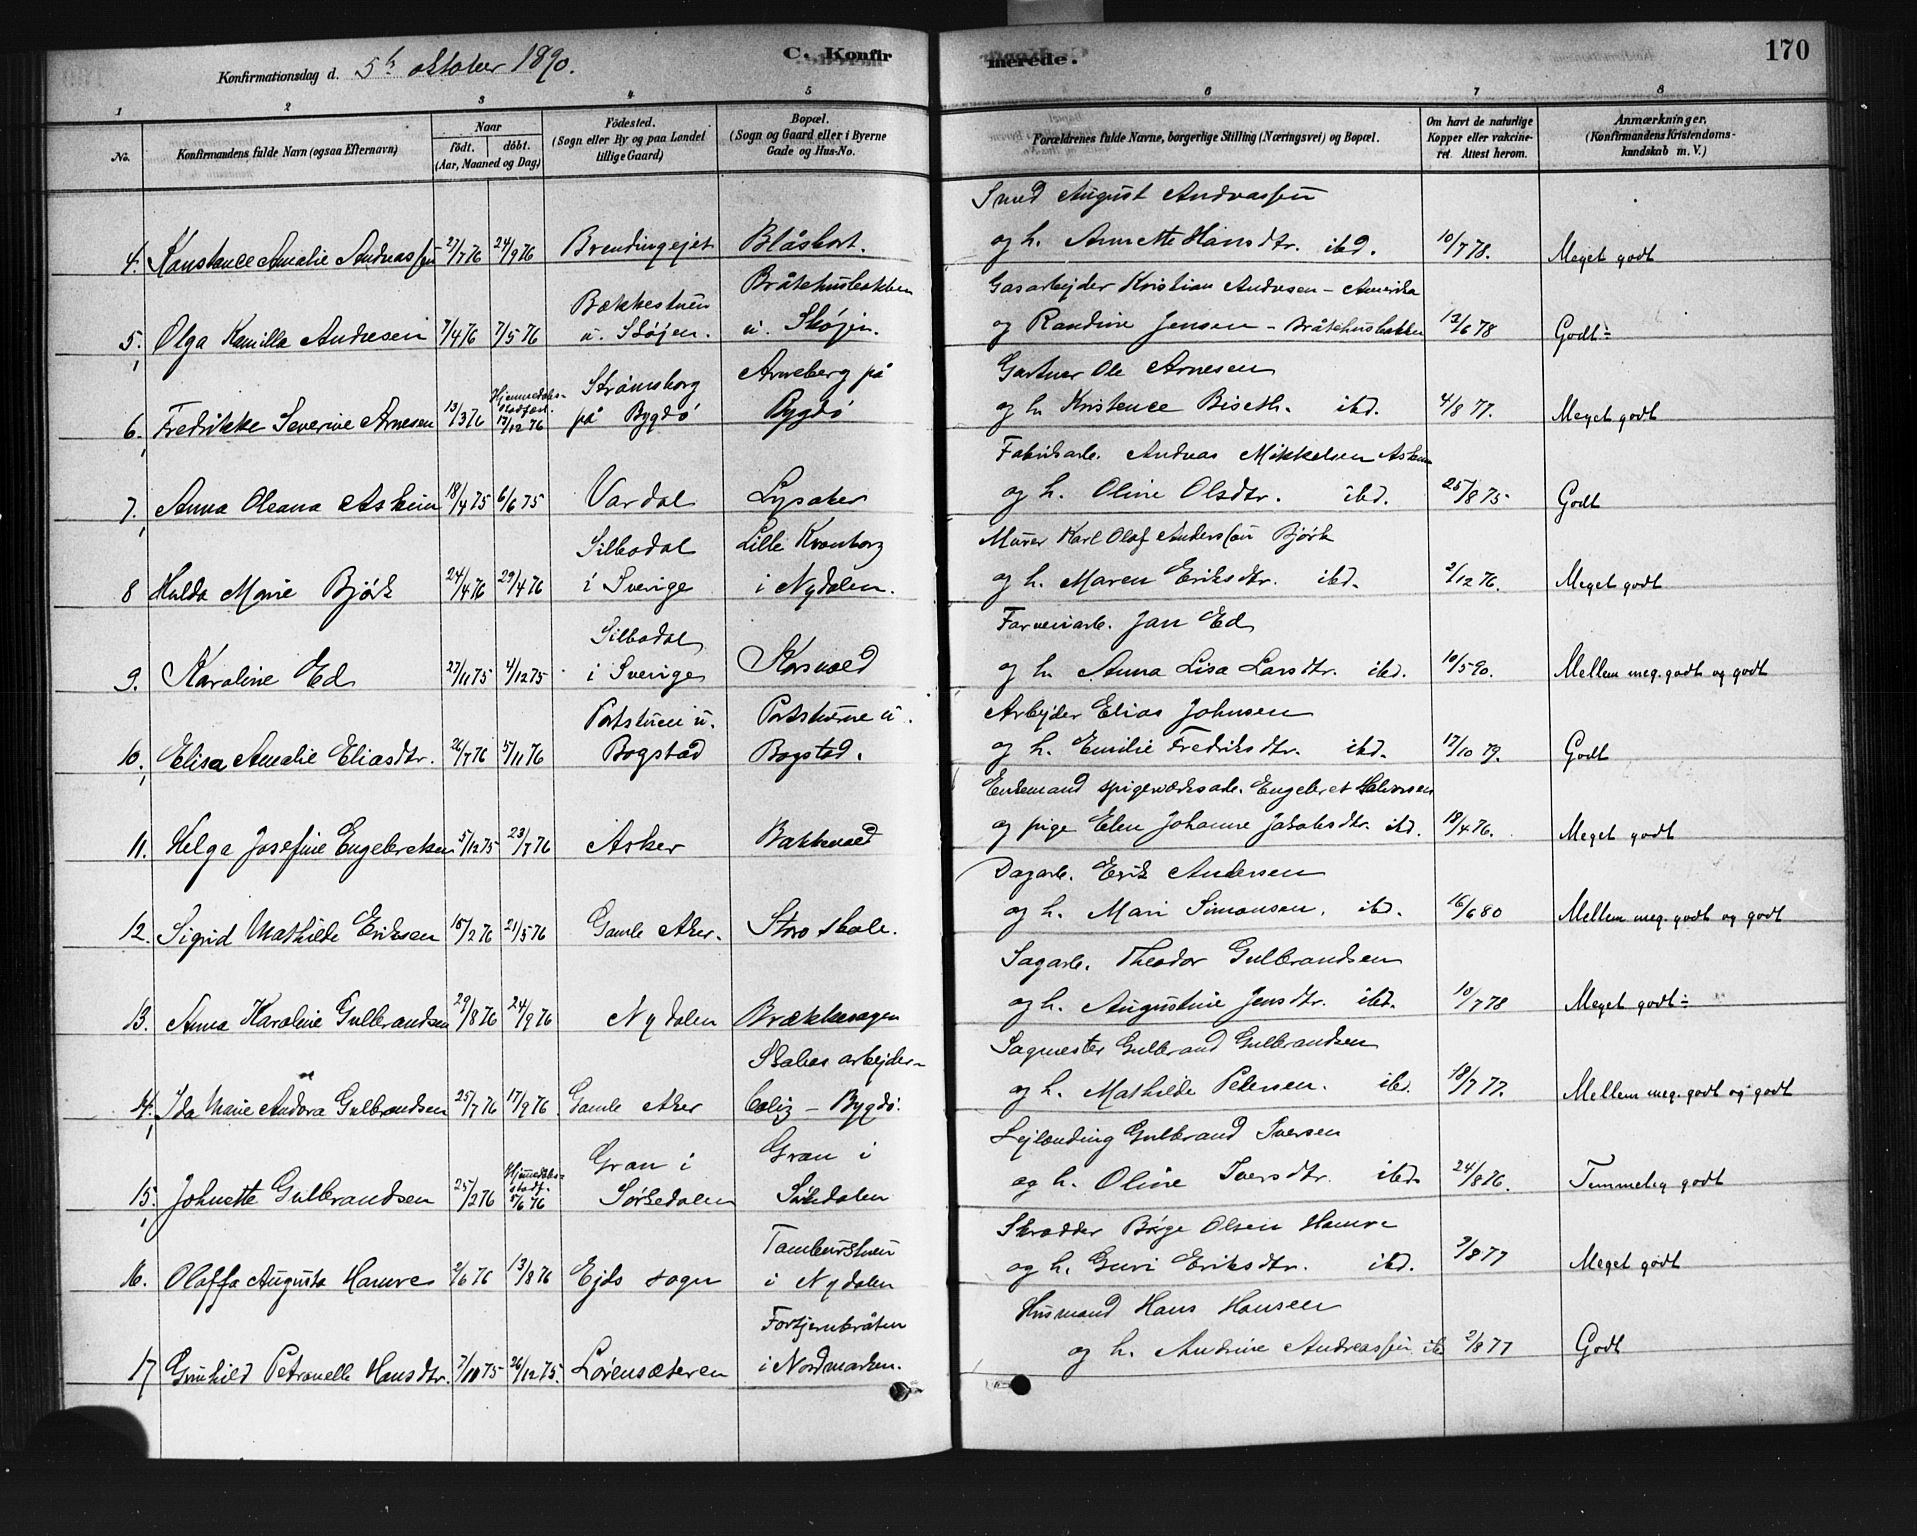 Konfirmationsdag d. 5te oktober 1890.
C. Konfirmerede.
170
1 2 3 4 5 6 7 8
No.
Konfirmandens fulde Navn (ogsaa Efternavn)
Naar
født. døbt.
(Aar, Maaned og Dag)
Fødested.
(Sogn eller By og paa Landet
tillige Gaard)
Bopæl.
(Sogn og Gaard eller i Byerne
Gade og Hus-No.
Forældrenes fulde Navne, borgerlige Stilling (Næringsvei) og Bopæl.
Om havt de naturlige
Kopper eller vakcine-
ret. Attest herom.
Anmærkninger.
(Konfirmandens Kristendoms-
kundskab m. V.)
Smed August Andreassen
4. Konstance Amalie Andreassen 27/7 76 24/9 76 Brendingejet Blåskort. og h. Annette Hansdtr. ibd. 10/7 78. Meget godt
Bækkestuen Bråtehusbakken Gasarbejder Kristian Andresen - Amerika
5. Olga Kamilla Andresen 7/4 76 7/5 76 u. Skøjen. u. Skøjen. og Randine Jensen - Bråtehusbakken 12/6 78 Godt ÷
Hjemmedøbt- Strømsborg Arneberg på Gartner Ole Arnesen
6. Fredrikke Severine Arnesen 13/3 76 17/12 76 på Bygdø Bygdø og h. Kristence Biseth. ibd. 4/8 77. Meget godt
Fabrikarb. Andreas Mikkelsen Askeim
7. Anna Oleana Askeim 18/4 75 6/6 75 Vardal Lysaker og h. Oline Olsdtr. ibd. 25/8 75 Godt
Silbodal Lille Kronborg Murer Karl Olof Andersson Björk
8 Hulda Marie Bjørk 24/4 76 29/4 76 i Sverige i Nydalen. og h. Maren Eriksdtr. ibd. 2/12 76. Meget godt
Silbodal Farveriarb. Jan Ed
9. Karoline Ed 27/11 75 4/12 75 i Sverige Korsvold og h. Anna Lisa Larsdtr. ibd. 10/5 90. Mellem meg. godt og godt
Portstuen u. Portstuene u. Arbejder Elias Johnsen
10. Elisa Amalie Eliasdtr. 26/7 76 5/11 76 Bogstad Bogstad. og h. Emilie Fredriksdtr. ibd. 17/10 79. Godt
Enkemand spigerværksarb. Engebret Halvorsen
11. Helga Josefine Engebretsen 5/12 75 23/7 76 Asker Bakkevold og pige Elen Johanne Jakobsdtr. ibd. 18/4 76. Meget godt
Dagarb. Erik Andersen
12. Sigrid Mathilde Eriksen 18/2 76 21/5 76 Gamle Aker. Storo skole. og h. Mari Simonsen. ibd. 16/6 80 Mellem meg. godt og godt
Sagarb. Theodor Gulbrandsen
13. Anna Karoline Gulbrandsen 29/8 76 24/9 76 Nydalen Brækkesagen og h. Augustine Jensdtr. ibd. 10/7 78 Meget godt ÷
Skabos arbejder- Sagmester Gulbrand Gulbrandsen
14. Ida Marie Andora Gulbrandsen 25/7 76 17/9 76 Gamle Aker bolig - Bygdø. og h. Mathilde Petersen. ibd. 18/7 77. Mellem meg. godt og godt
Hjemmedøbt- Gran i Gran i Lejlending Gulbrand Iversen
15. Johnette Gulbrandsen 25/2 76 5/6 76 Sørkedalen Sørkedalen og h. Oline Iversdtr. ibd. 24/8 76. Temmelig godt
Tamburstuen Skrædder Børge Olsen Hamre
16. Olaffa Augusta Hamre 2/6 76 13/8 76 Ejds sogn i Nydalen og h. Guri Eriksdtr. ibd. 9/8 77 Meget godt
Fortjernbråten Husmand Hans Hansen
17 Gunhild Petronelle Hansdtr. 7/10 75 26/12 75. Lørensæteren i Nordmarken. og h. Andrine Andreassen ibd 2/8 77 Godt